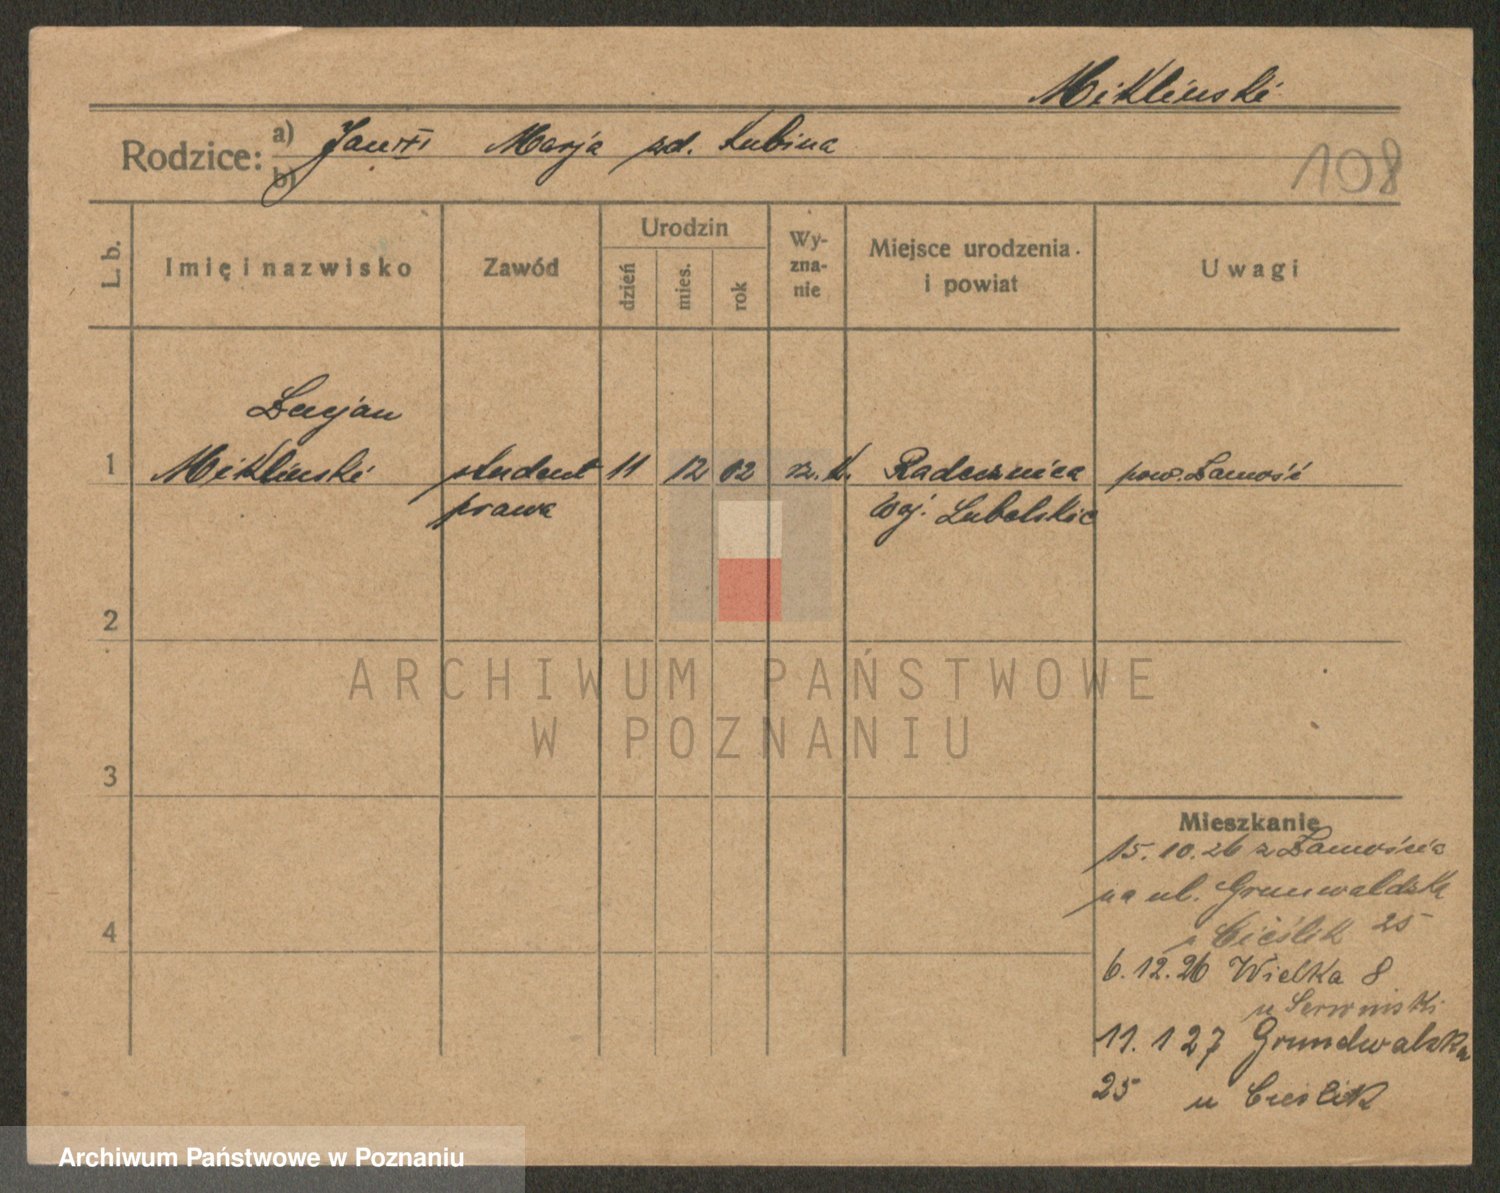 Miklinski
Rodzice:
a) Jan Marja zd. Łubina
b)
108
L. b.
Imię i nazwisko
Zawód
Urodzin
dzień
mies.
rok
Wy-
zna-
nie
Miejsce urodzenia
i powiat
Uwagi
Lucjan
1 Miklinski student 11 12 02 rz. k. Radecznica pow. Zamość
prawa Woj. Lubelskie
2
3
4
Mieszkanie
15.10.26 z Zamościa
na ul. Grunwaldzka
Cieślik 25
6.12.26 Wielka 8
u
11. 1 27 Grundwalzka
25 u Cieslik
ARCHIWUM PAŃSTWOWE
W POZNANIU
Archiwum Państwowe w Poznaniu